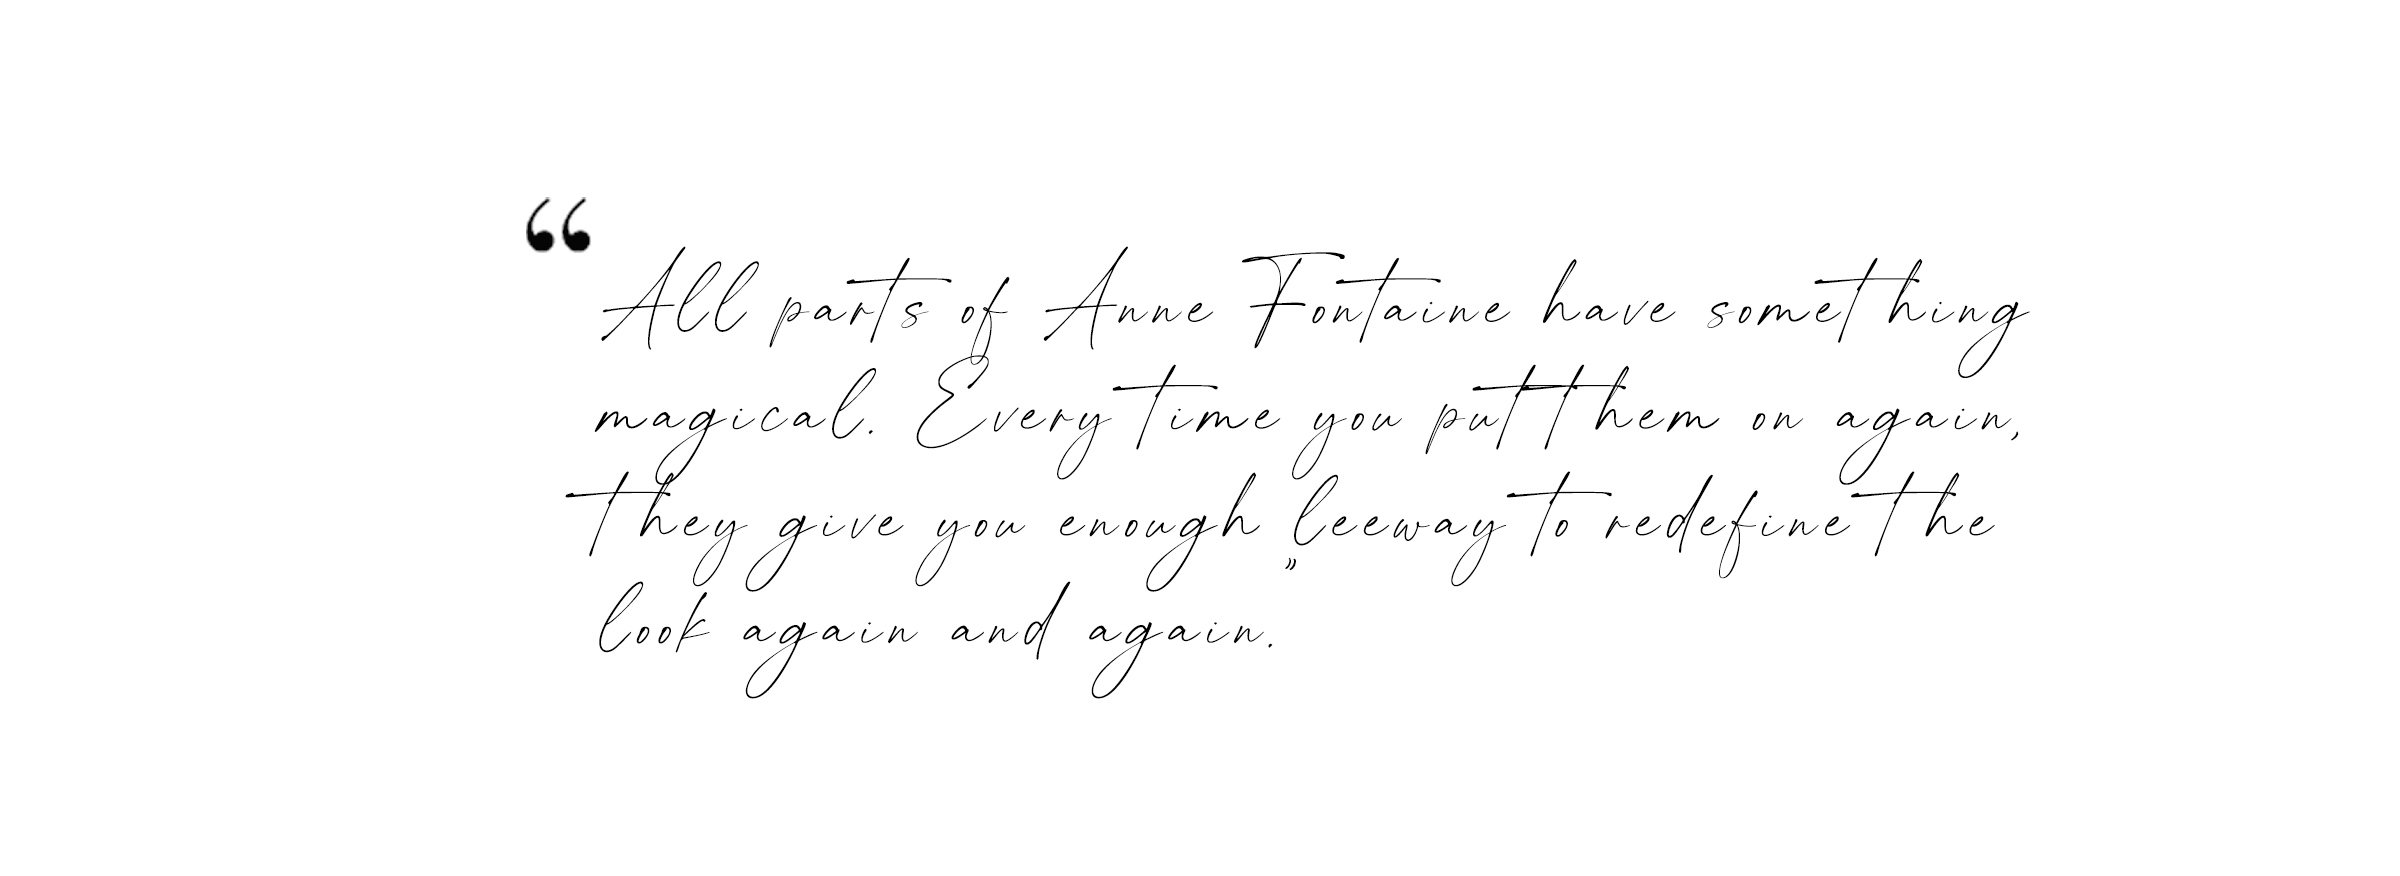 “All parts of Anne Fontaine have something
magical. Every time you put them on again,
they give you enough leeway to redefine the
look again and again.”